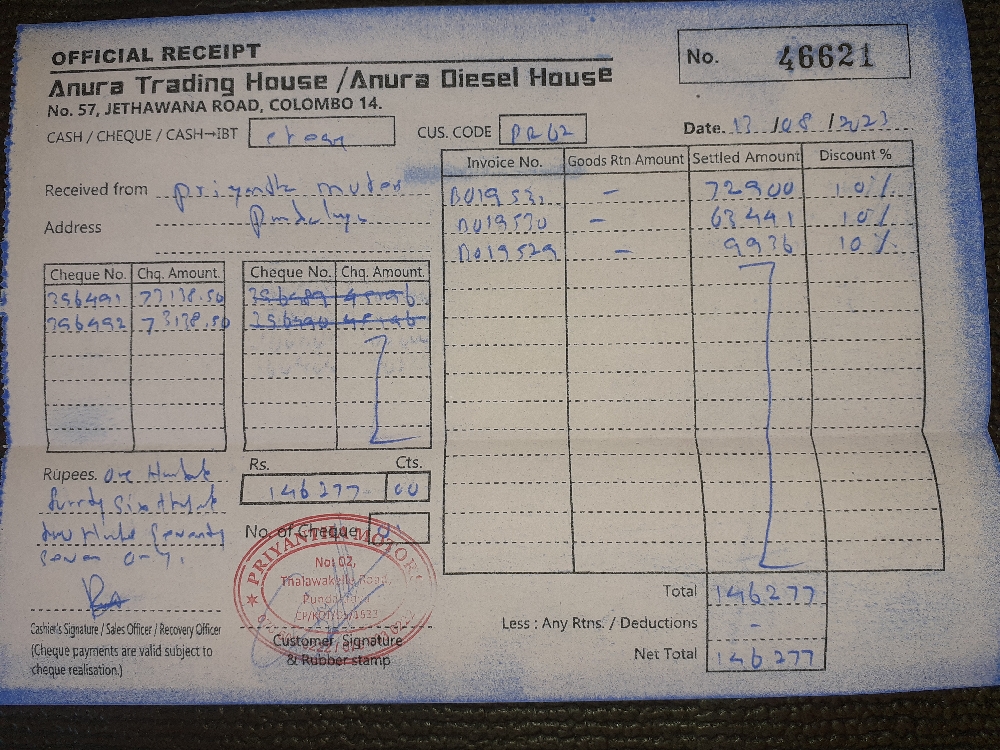 OFFICIAL RECEIPT
Anura Trading House /Anura Diesel House
No. 57, JETHAWANA ROAD, COLOMBO 14.
No. 46621
CASH / CHEQUE / CASH→IBT
CUS. CODE PR62
Date. 13 /08 /2023
Received from priyantha
Address
Invoice No. Goods Rtn Amount Settled Amount Discount %
– 72900 10%
B019530 – 63441 10%
B019529 – 9936 10%
Cheque No. Chq. Amount.
396491 73138.50
396492 73138.50
Cheque No. Chq. Amount.
396489
396490
Rupees. One
Six
Seven
Rs. Cts.
146277 00
No. of Cheque
PRIYANTHA MOTOR
No: 02,
Thalawakelle Road,
Cashier's Signature / Sales Officer / Recovery Officer
(Cheque payments are valid subject to
cheque realisation.)
Customer Signature
& Rubber stamp
Total 146277
Less : Any Rtns. / Deductions -
Net Total 146277